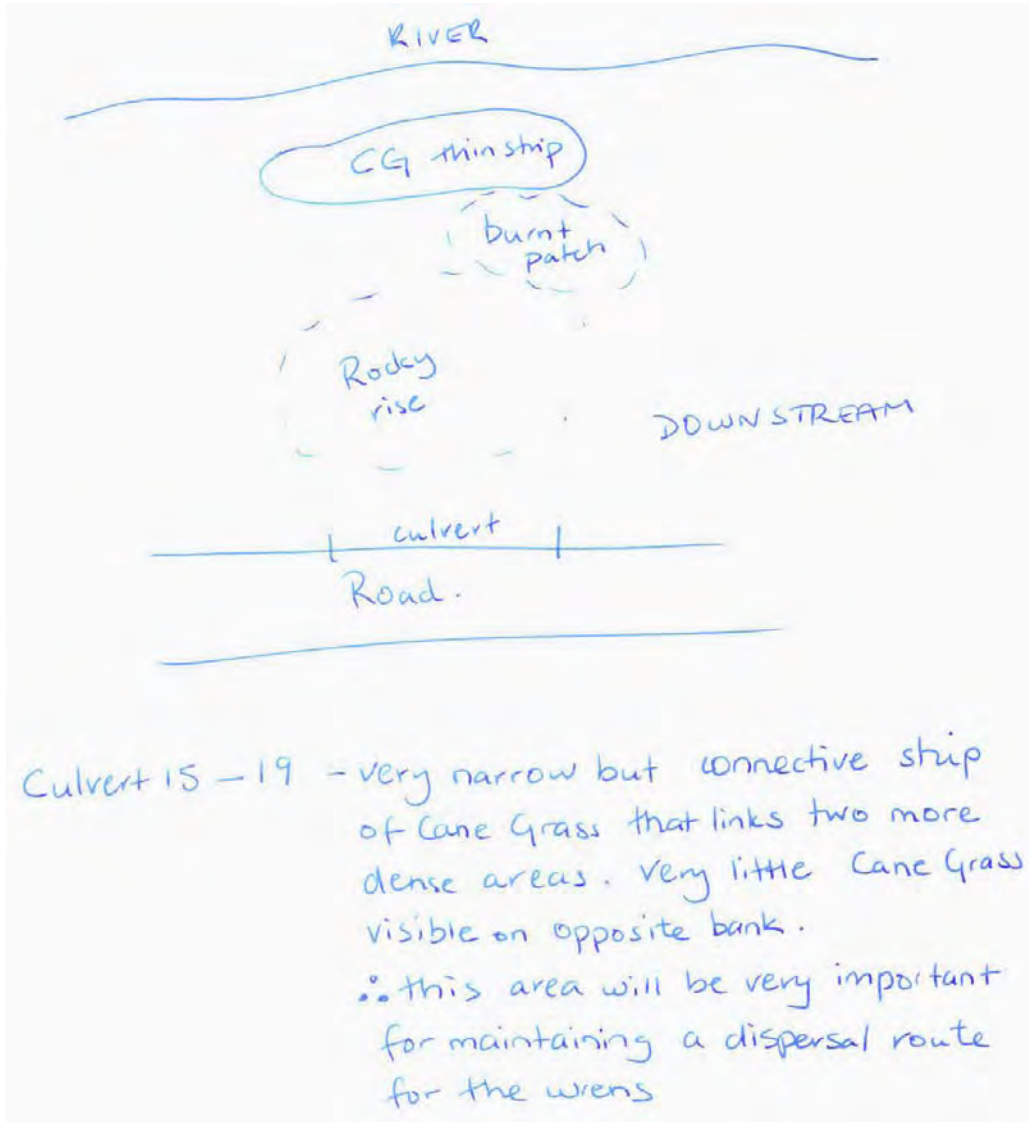 RIVER
CG thin strip
burnt
patch
Rocky
rise
DOWNSTREAM
culvert
Road.
Culvert 15 - 19 - very narrow but connective strip
of Cane Grass that links two more
dense areas. Very little Cane Grass
visible on opposite bank.
∴ this area will be very important
for maintaining a dispersal route
for the wrens